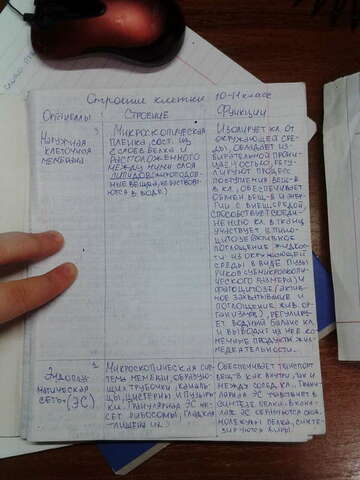 Строение клетки 10-11 класс
Органеллы
Строение
Функции
Наружная
клеточная
мембрана
Микроскопическая
пленка, сост. из
2 слоев белка и
расположенного
между ними слоя
липидов
в воде)
Изолирует кл. от
окружающей сре-
ды, обладает из-
бирательной прони-
цаемостью, регу-
лирует процесс
поступления вещ-в
в кл., обеспечивает
обмен вещ-в и энер-
гии с внеш. средой,
способствует соеди-
нению кл. в ткань
участвует в пино-
цитозе
поглощение жидкос-
ти из окружающей
среды в виде пузы-
рьков
ческого размера) и
фагоцитозе (актив-
ное захватывание и
поглощение жив. ор-
ганизмов), регулирует
водный баланс кл.
и выводит из нее ко-
нечные продукты жиз-
недеятельности.
Эндоплаз-
матическая
сеть (ЭС)
Микроскопическая сис-
тема мембран, образую-
щих трубочки, каналь-
цы, цистерны и пузырьки
кл. Гранулярная ЭС не-
сет рибосомы, гладкая
лишена их.
Обеспечивает транспорт
вещ-в как внутри, так и
между сосед. кл. Грану-
лярная ЭС участвует в
синтезе белка. В кана-
лах ЭС
молекулы белка, синте-
зируются жиры.